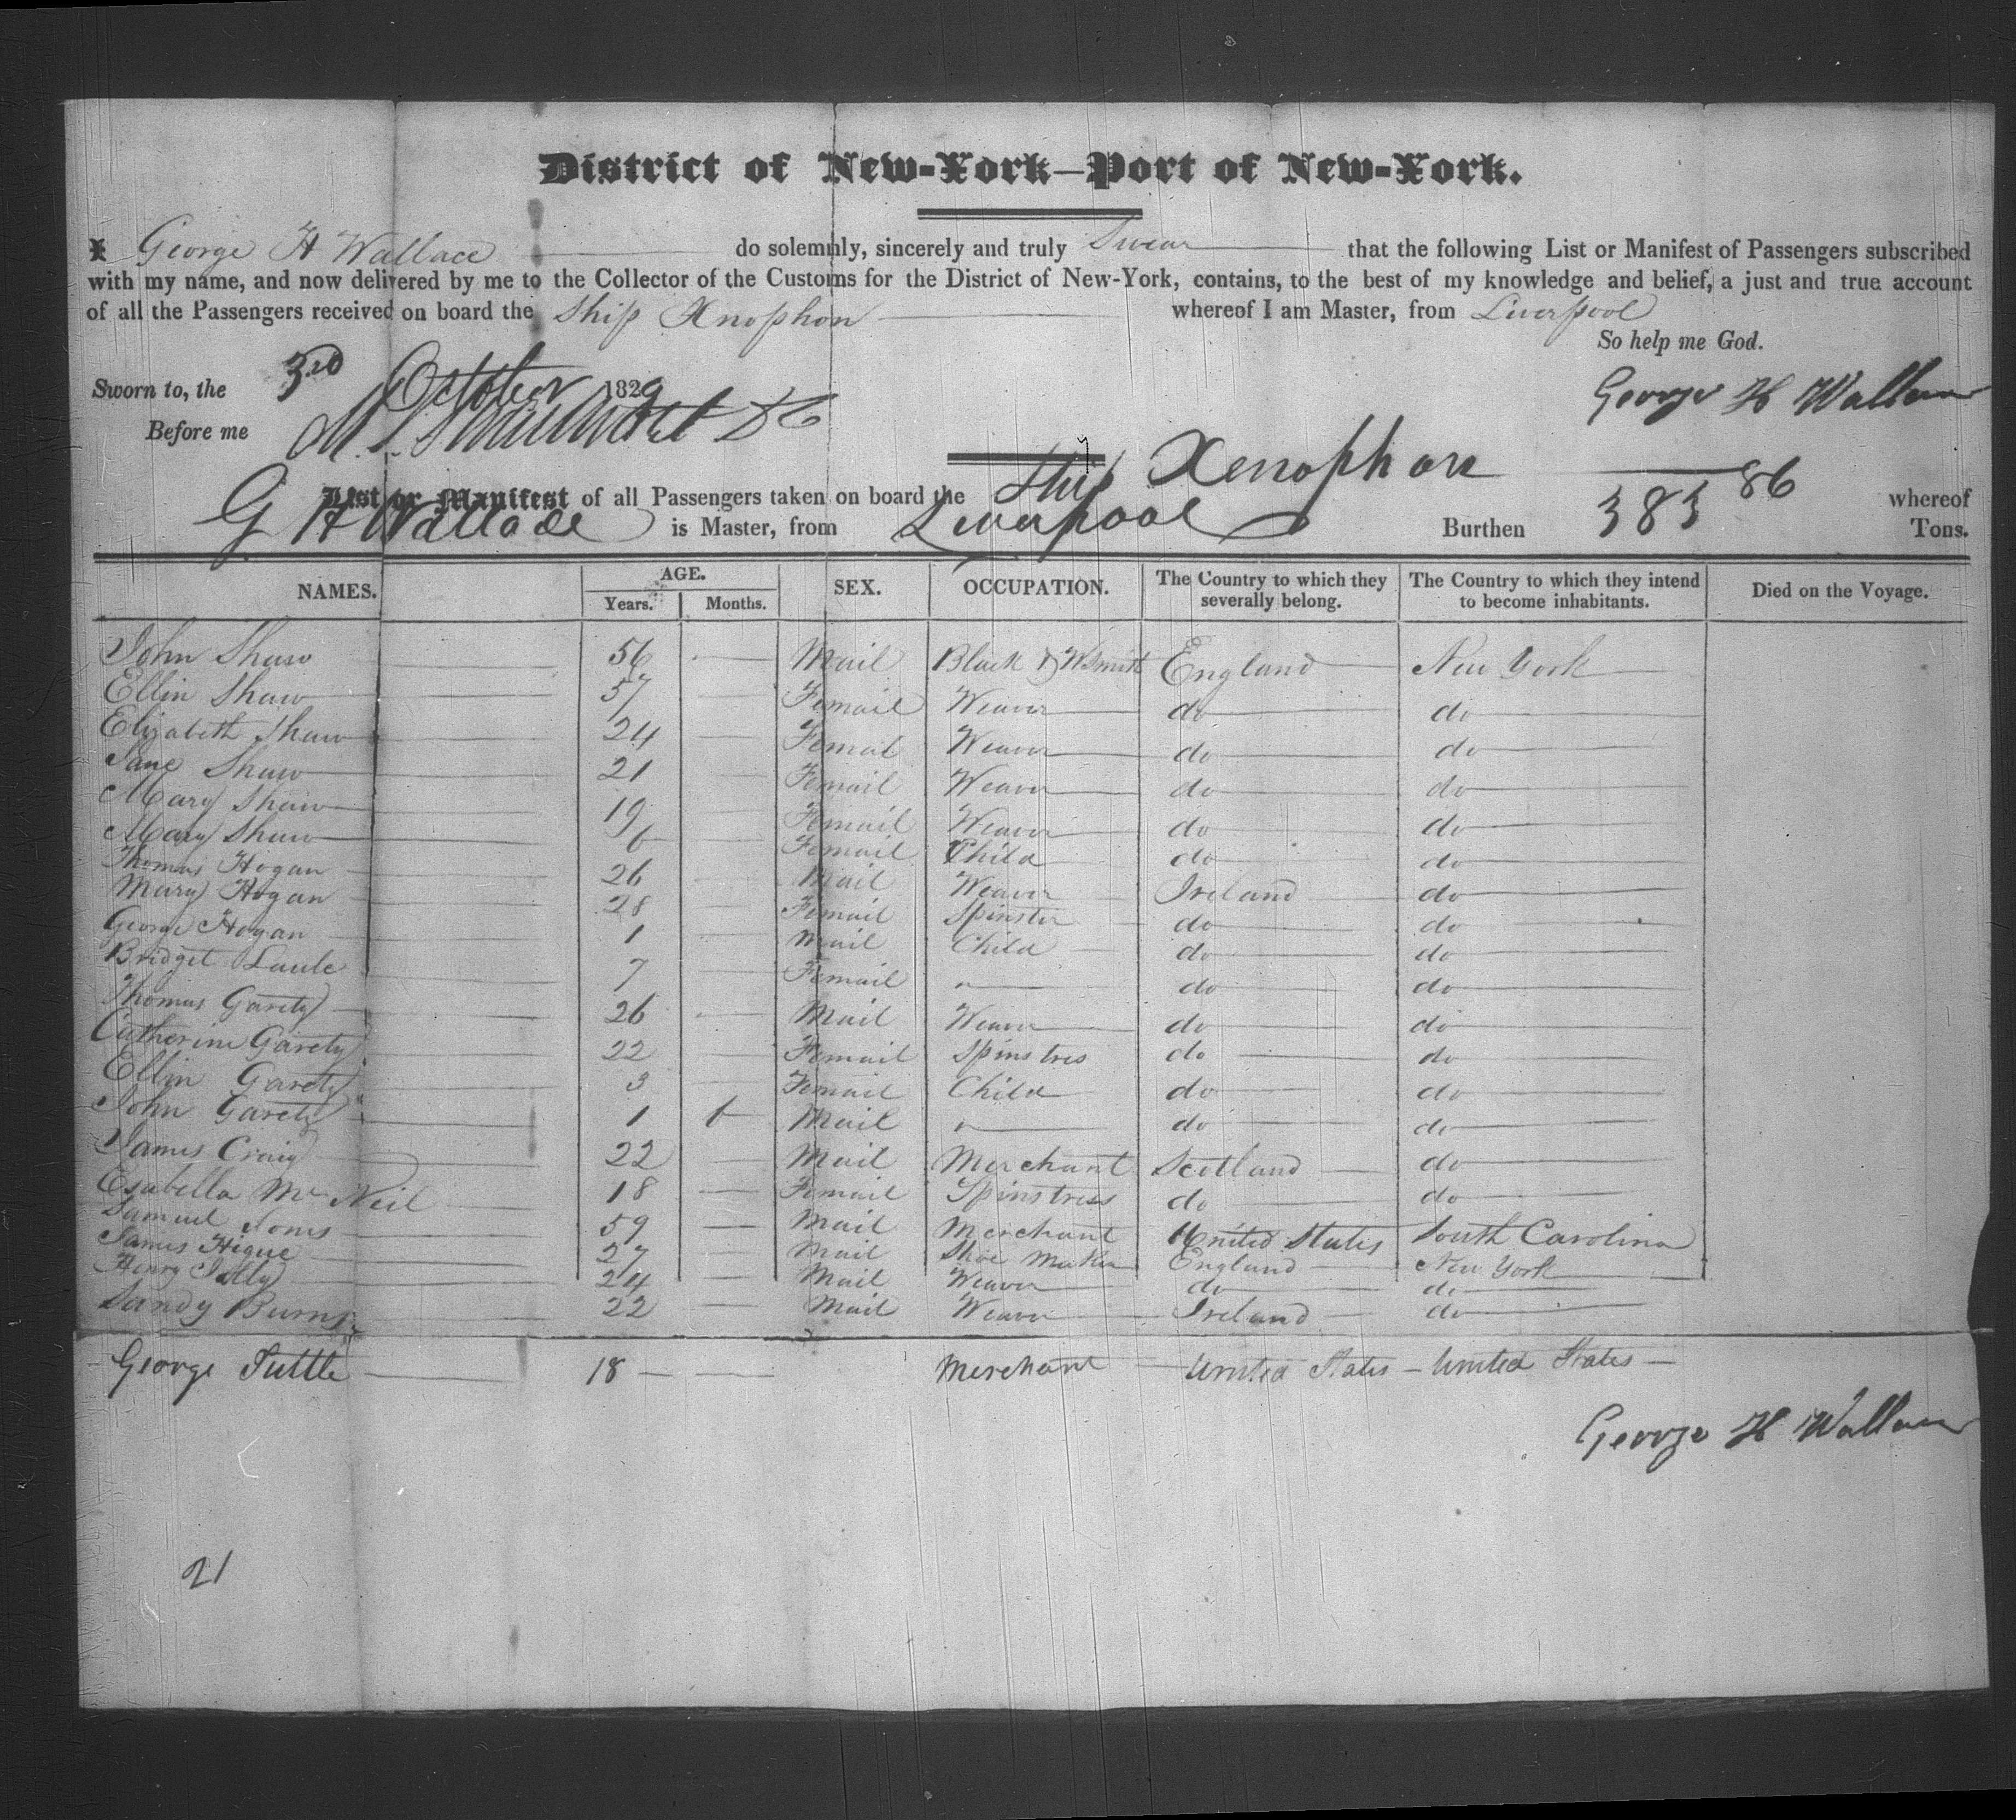 District of New-York—Port of New-York.
I George H Wallace do solemnly, sincerely and truly Swear that the following List or Manifest of Passengers subscribed
with my name, and now delivered by me to the Collector of the Customs for the District of New-York, contains, to the best of my knowledge and belief, a just and true account
of all the Passengers received on board the Ship Xnophon whereof I am Master, from Liverpool
So help me God.
Sworn to, the 3rd October 1829 George H Wallace
Before me
List or Manifest of all Passengers taken on board the Ship Xenophon whereof
G H Wallace is Master, from Liverpool Burthen 383 86 Tons.
NAMES. AGE. Years. Months. SEX. OCCUPATION. The Country to which they severally belong. The Country to which they intend to become inhabitants. Died on the Voyage.
John Shaw 56 Mail Black & WSmith England New York
Ellin Shaw 57 Femail Weaver do do
Elizabeth Shaw 24 Femail Weaver do do
Jane Shaw 21 Femail Weaver do do
Mary Shaw 19 Femail Weaver do do
Mary Shaw 6 Femail Child do do
Thomas Hogan 26 Mail Weaver Ireland do
Mary Hogan 28 Femail Spinster do do
George Hogan 1 Mail Child do do
Bridget 7 Femail " do do
Thomas Garety 26 Mail Weaver do do
Catherine Garety 22 Femail Spinstres do do
Ellin Garety 3 Femail Child do do
John Garety 1 6 Mail " do do
James Craig 22 Mail Merchant Scotland do
Esabella Mc Neil 18 Femail Spinstress do do
Samuel Jones 59 Mail Merchant United States South Carolina
James Higue 27 Mail Shoe Maker England New York
Henry 24 Mail Weaver do do
Sandy Burns 22 Mail Weaver Ireland do
George Tuttle 18 Merchant United States United States
George H Wallace
21